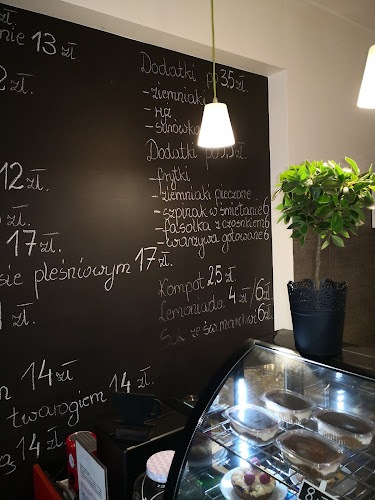 zł.
nie 13 zł
2 zł.
12 zł.
zł.
17 zł.
sie pleśniowym 17 zł.
zł.
14 zł
twarogiem 14 zł.
14 zł
Dodatki po 3,5 zł.
- ziemniaki
- ryż
- surówka
Dodatki po 5,5 zł.
- frytki
- ziemniaki pieczone
- szpinak w śmietanie 6
- fasolka z czosnkiem 6
- warzywa gotowane 6
Kompot 2,5 zł.
Lemoniada 4 zł/6 zł.
Sok ze św. marchwi 6 zł.